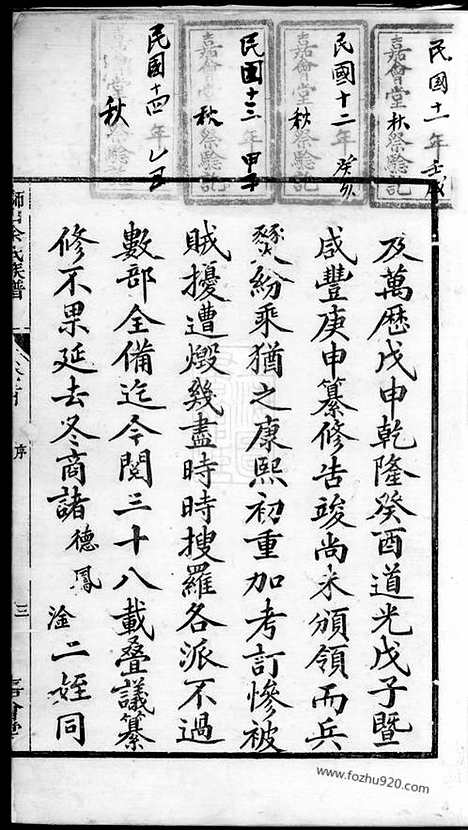 民國十一年壬戌
嘉會堂秋祭驗訖
民國十二年癸亥
嘉會堂秋祭驗訖
民國十三年甲子
嘉會堂秋祭驗訖
民國十四年乙丑
嘉會堂秋祭驗訖
及萬歷戊申乾隆癸酉道光戊子暨
咸豐庚申纂修告竣尚未頒領而兵
燹紛乘猶之康熙初重加考訂慘被
賊擾遭燬幾盡時時搜羅各派不過
數部全備迄今閱三十八載叠議纂
修不果延去冬商諸德鳳淦二姪同
余氏族譜
序
三
嘉會堂
www.fozhu920.com